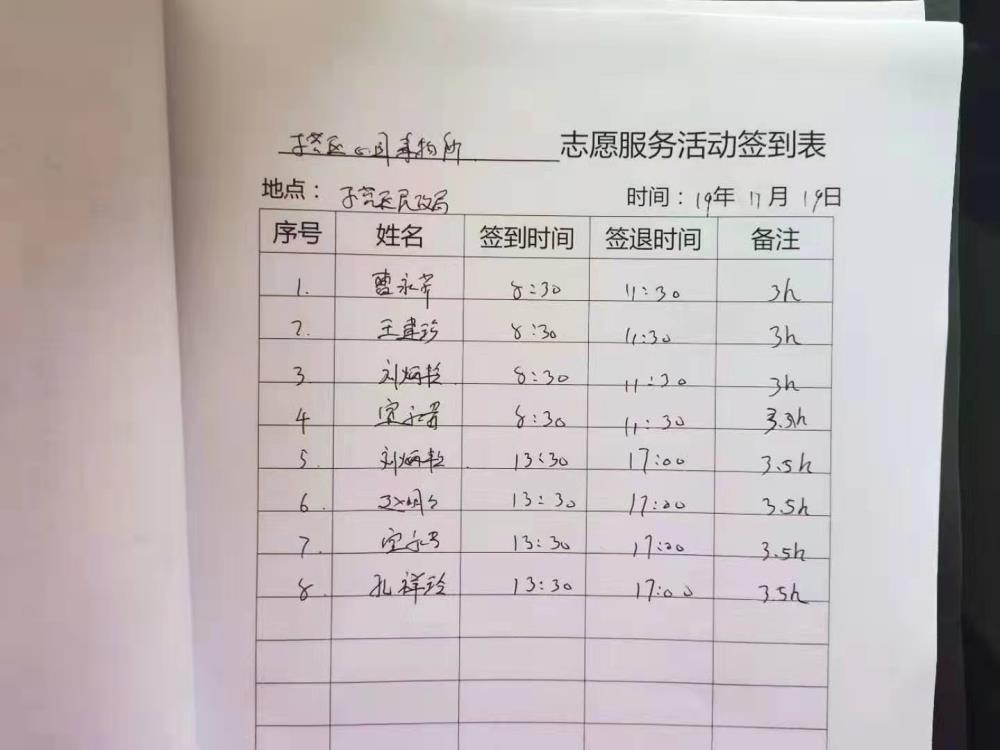 志愿服务活动签到表
地点： 民政局
时间：19年 月 19日
序号 姓名 签到时间 签退时间 备注
1. 曹永 8:30 11:30 3h
2. 王建玲 8:30 11:30 3h
3. 刘炳 8:30 11:30 3h
4 8:30 11:30 3.3h
5. 刘炳 13:30 17:00 3.5h
6. 13:30 17:00 3.5h
7. 13:30 17:00 3.5h
8. 孔祥玲 13:30 17:00 3.5h